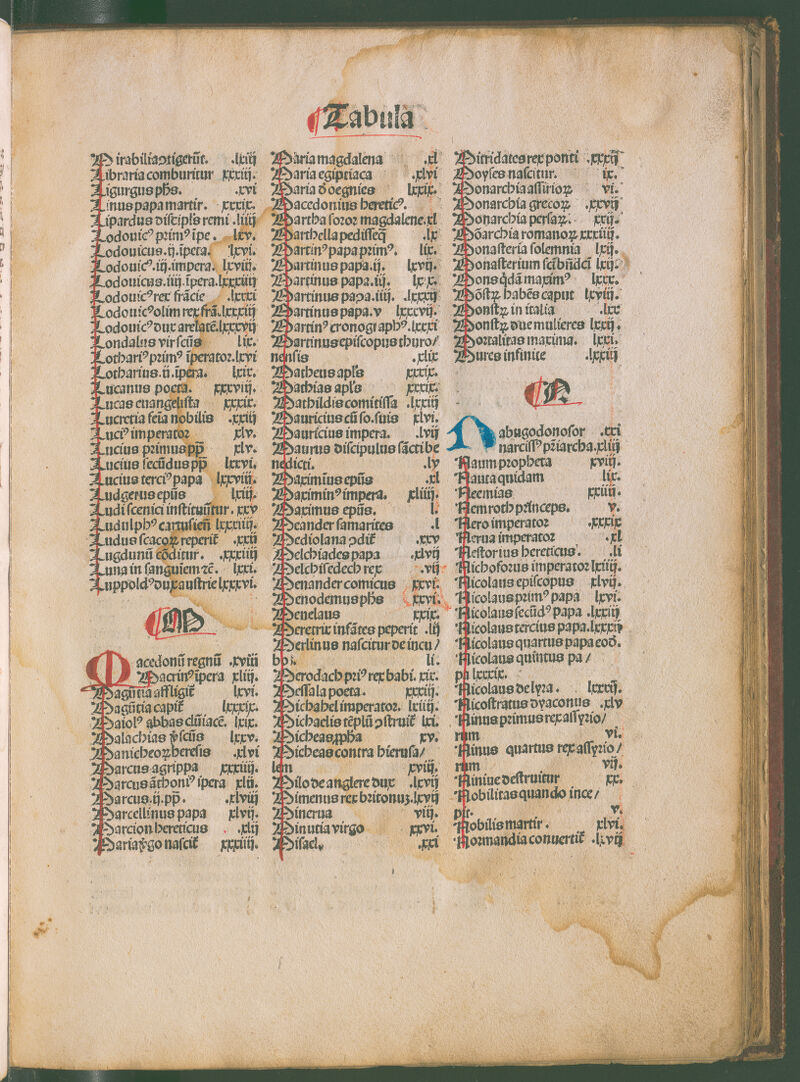 Tabula
Mirabilia ɔtigerūt. .lxiij
Libraria comburitur xxxiij.
Ligurgus phs. .xvi
Linus papa martir. xxxix.
Lipardus discipls remi .liiij
Lodouicꝰ pꝛimꝰ īpe. lxv.
Lodouicus.ij.īpera. lxvi.
Lodouicꝰ.iij.impera. lxviij.
Lodouicus.iiij.īpera.lxxxiiij
Lodouicꝰ rex frācie .lxxxi
Lodouicꝰ olim rex frā.lxxxiij
Lodouicꝰ dux arelatē.lxxxvij
Londalus vir scūs lix.
Lothariꝰ pꝛimꝰ īperatoꝛ.lxvi
Lotharius.ij.īpera. lxix.
Lucanus poeta. xxxviij.
Lucas euangelista xxxix.
Lucretia feīa nobilis .xxiij
Luciꝰ imperatoꝛ xlv.
Lucius pꝛimus pp xlv.
Lucius secūdus pp lxxvi.
Lucius terciꝰ papa lxxviij.
Ludgerus epūs lxiij.
Ludi scenici instituūtur. xxv
Ludulphꝰ cartusieñ lxxxiiij.
Ludus scacoꝝ reperit .xxij
Lugdunū cōditur. .xxxiiij
Luna in sanguiem ⁊c̄. lxxi.
Luppoldꝰ dux austrie lxxxvi.
M
Macedonū regnū .xviij
Macrinꝰ īpera xliij.
Magūtia affligit lxvi.
Magūtia capit lxxxix.
Maiolꝰ abbas clūiacē. lxix.
Malachias ꝓ scūs lxxv.
Manicheoꝝ heresis .xlvi
Marcus agrippa xxxiiij.
Marcus āthoniꝰ īpera xlij.
Marcus.ij.pp. .xlviij
Marcellinus papa xlvij.
Marcion hereticus .xlij
Maria ꝟgo nascit xxxiiij.
Maria magdalena .xl
Maria egiptiaca .xlvi
Maria d oegnies lxxix.
Macedonius hereticꝰ.
Martha soꝛoꝛ magdalene.xl
Marthella pedisseq̄ .lx
Martinꝰ papa pꝛimꝰ. lix.
Martinus papa.ij. lxvij.
Martinus papa.iij. lxx.
Martinus papa.iiij. .lxxxij
Martinus papa.v lxxxvij.
Martinꝰ cronographꝰ.lxxxi
Martinus episcopus thuro/
nensis .xlix
Matheus apls xxxix.
Mathias apls xxxix.
Mathildis comitissa .lxxiij
Mauricius cū so.suis xlvi.
Mauricius impera. .lvij
Maurus discipulus sācti be
nedicti. .lv
Maximius epūs .xl
Maximinꝰ impera. xliiij.
Maximus epūs. l.
Meander samarites .l
Mediolana ɔdit .xxv
Melchiades papa .xlvij
Melchisedech rex .vij
Menander comicus xxvi.
Menodemus phs xxvi.
Menelaus xxix.
Meretrix infātes peperit .lij
Merlinus nascitur de incu/
bo. li.
Merodach pꝛiꝰ rex babi. xix.
Messala poeta. xxxiij.
Michahel imperatoꝛ. lxiiij.
Michaelis tēplū ɔstruit lxi.
Micheas ꝓpha xv.
Micheas contra hierusa/
lem xviij.
Milo de anglere dux .lxvij
Mimenus rex bꝛitonuꝫ.lxvij
Minerua viij.
Minutia virgo xxvi.
Misael. .xxi
Mitridates rex ponti .xxxij
Moyses nascitur. ix.
Monarchia assirioꝝ vi.
Monarchia grecoꝝ .xxvij
Monarchia persaꝝ. xxij.
Mōarchia romanoꝝ xxxiiij.
Monasteria solemnia lxij.
Monasterium scī bn̄dcī lxij.
Mons q̄dā maximꝰ lxxx.
Mōstꝝ habēs caput lxviij.
Monstꝝ in italia .lxx
Monstꝝ due mulieres lxxij.
Moꝛtalitas maxima. lxxi.
Mures infinite .lxxiij
N
Nabugodonosor .xxi
narcissꝰ pr̄iarcha.xliij
Naum pꝛopheta xviij.
Nauta quidam lix.
Neemias xxiiij.
Nemroth pꝛinceps. v.
Nero imperatoꝛ .xxxix
Nerua imperatoꝛ .xl
Nestoꝛius hereticus. .li
Nichofoꝛus imperatoꝛ lxiiij.
Nicolaus episcopus xlvij.
Nicolaus pꝛimꝰ papa lxvi.
Nicolaus secūdꝰ papa .lxxiij
Nicolaus tercius papa.lxxxij
Nicolaus quartus papa eod.
Nicolaus quintus pa/
pa lxxxix.
Nicolaus de lyꝛa. lxxxij.
Nicostratus dyaconus .xlv
Ninus pꝛimus rex assyꝛio/
rum vi.
Ninus quartus rex assyꝛio/
rum vij.
Niniue destruitur xx.
Nobilitas quando ince/
pit. v.
Nobilis martir. xlvi.
Noꝛmandia conuertit .lxvij